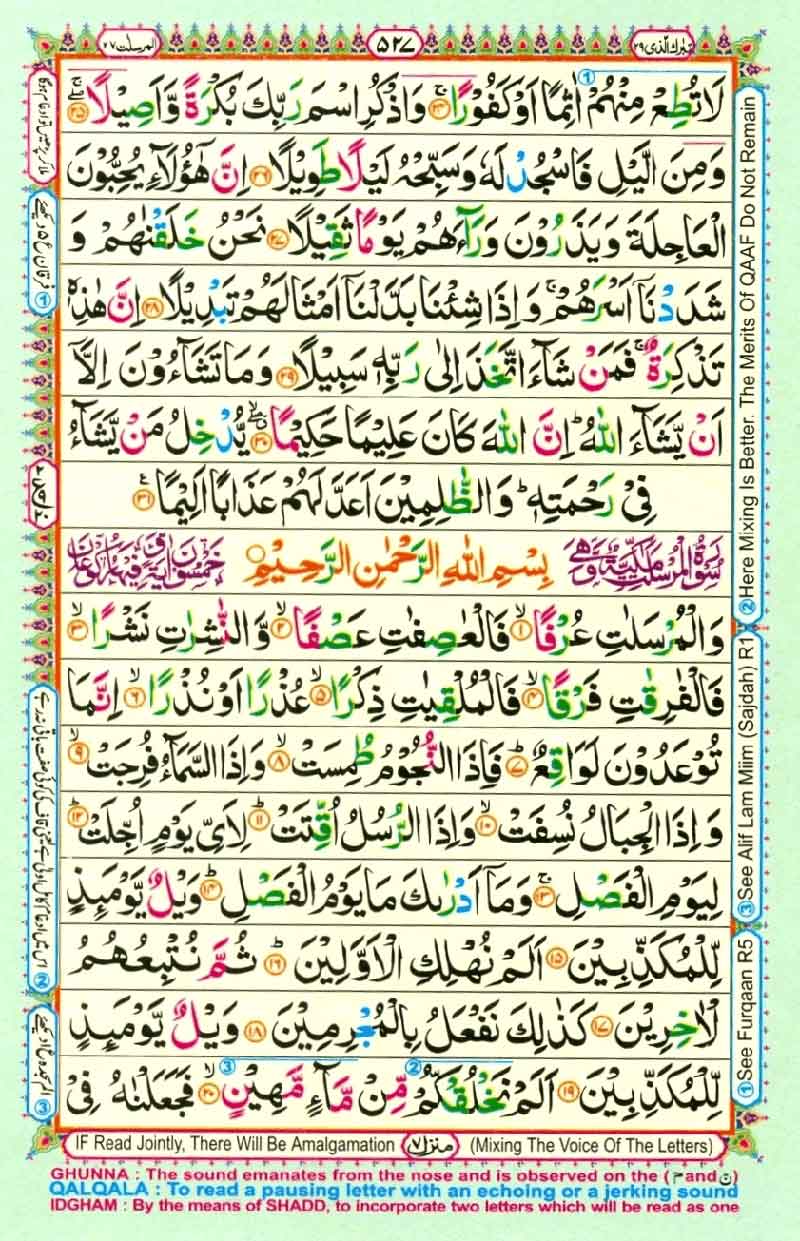 تبرك الذی ٢٩
٥٢٧
المرسلت ٧٧
لَا تُطِعْ مِنْهُمْ اٰثِمًا اَوْ كَفُوْرًا ﴿٢٤﴾ وَاذْكُرِ اسْمَ رَبِّكَ بُكْرَةً وَّاَصِيْلًا ﴿٢٥﴾
وَمِنَ الَّيْلِ فَاسْجُدْ لَهٗ وَسَبِّحْهُ لَيْلًا طَوِيْلًا ﴿٢٦﴾ اِنَّ هٰۤؤُلَآءِ يُحِبُّوْنَ
الْعَاجِلَةَ وَيَذَرُوْنَ وَرَآءَهُمْ يَوْمًا ثَقِيْلًا ﴿٢٧﴾ نَحْنُ خَلَقْنٰهُمْ وَ
شَدَدْنَاۤ اَسْرَهُمْ ۚ وَاِذَا شِئْنَا بَدَّلْنَاۤ اَمْثَالَهُمْ تَبْدِيْلًا ﴿٢٨﴾ اِنَّ هٰذِهٖ
تَذْكِرَةٌ ۚ فَمَنْ شَآءَ اتَّخَذَ اِلٰى رَبِّهٖ سَبِيْلًا ﴿٢٩﴾ وَمَا تَشَآءُوْنَ اِلَّاۤ
اَنْ يَّشَآءَ اللّٰهُ ؕ اِنَّ اللّٰهَ كَانَ عَلِيْمًا حَكِيْمًا ﴿٣٠﴾ يُّدْخِلُ مَنْ يَّشَآءُ
فِيْ رَحْمَتِهٖ ؕ وَالظّٰلِمِيْنَ اَعَدَّ لَهُمْ عَذَابًا اَلِيْمًا ﴿٣١﴾
بِسْمِ اللّٰهِ الرَّحْمٰنِ الرَّحِيْمِ
وَالْمُرْسَلٰتِ عُرْفًا ﴿١﴾ فَالْعٰصِفٰتِ عَصْفًا ﴿٢﴾ وَّالنّٰشِرٰتِ نَشْرًا ﴿٣﴾
فَالْفٰرِقٰتِ فَرْقًا ﴿٤﴾ فَالْمُلْقِيٰتِ ذِكْرًا ﴿٥﴾ عُذْرًا اَوْ نُذْرًا ﴿٦﴾ اِنَّمَا
تُوْعَدُوْنَ لَوَاقِعٌ ﴿٧﴾ فَاِذَا النُّجُوْمُ طُمِسَتْ ﴿٨﴾ وَاِذَا السَّمَآءُ فُرِجَتْ ﴿٩﴾
وَاِذَا الْجِبَالُ نُسِفَتْ ﴿١٠﴾ وَاِذَا الرُّسُلُ اُقِّتَتْ ﴿١١﴾ لِاَيِّ يَوْمٍ اُجِّلَتْ ﴿١٢﴾
لِيَوْمِ الْفَصْلِ ﴿١٣﴾ وَمَاۤ اَدْرٰىكَ مَا يَوْمُ الْفَصْلِ ﴿١٤﴾ وَيْلٌ يَّوْمَئِذٍ
لِّلْمُكَذِّبِيْنَ ﴿١٥﴾ اَلَمْ نُهْلِكِ الْاَوَّلِيْنَ ﴿١٦﴾ ثُمَّ نُتْبِعُهُمُ
الْاٰخِرِيْنَ ﴿١٧﴾ كَذٰلِكَ نَفْعَلُ بِالْمُجْرِمِيْنَ ﴿١٨﴾ وَيْلٌ يَّوْمَئِذٍ
لِّلْمُكَذِّبِيْنَ ﴿١٩﴾ اَلَمْ نَخْلُقْكُّمْ مِّنْ مَّآءٍ مَّهِيْنٍ ﴿٢٠﴾ فَجَعَلْنٰهُ فِيْ
① See Furqaan R5
③ See Alif Lam Miim (Sajdah) R1
② Here Mixing Is Better. The Merits Of QAAF Do Not Remain
IF Read Jointly, There Will Be Amalgamation منزل ٧ (Mixing The Voice Of The Letters)
GHUNNA : The sound emanates from the nose and is observed on the (م and ن)
QALQALA : To read a pausing letter with an echoing or a jerking sound
IDGHAM : By the means of SHADD, to incorporate two letters which will be read as one